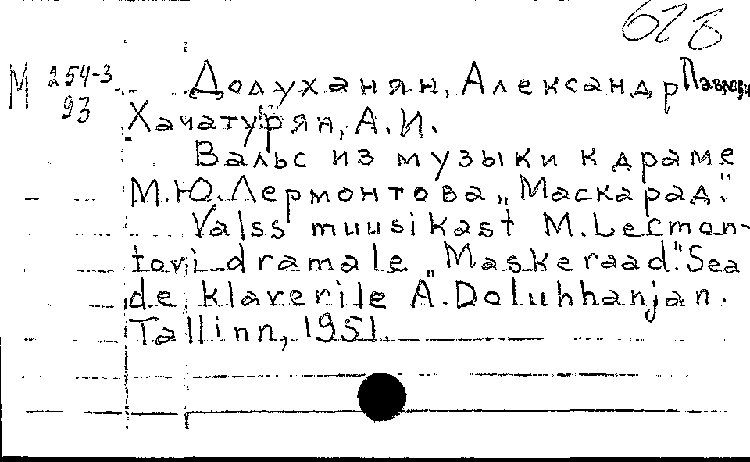 628
М 254-3 Долуханян, Александр Павлович
93 Хачатурян, А.И.
Вальс из музыки к драме
М.Ю.Лермонтова „Маскарад."
Valss muusikast M. Lermon-
tovi dramale „Maskeraad". Sea
de klaverile A. Doluhhanjan.
Tallinn, 1951.